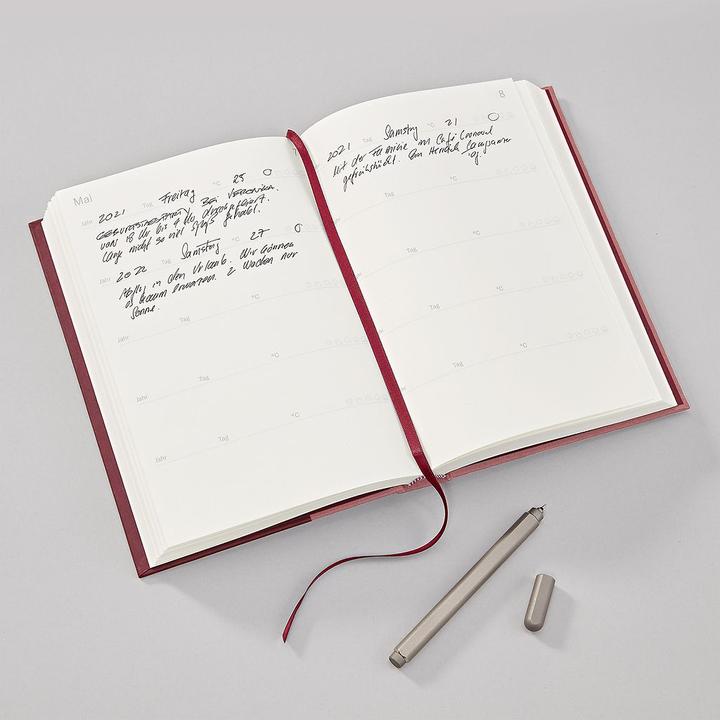 Mai
Jahr 2021 Tag Freitag 25 °C
GEBURTSTAGSPARTY BEI VERONIKA.
von 18 Uhr bis 4 Uhr durchgefeiert.
Lange nicht so viel Spaß gehabt.
Jahr 2022 Samstag 27
Abflug in den Urlaub. Wir können
es kaum erwarten. 2 Wochen nur
Sonne.
Jahr Tag °C
Jahr Tag °C
Jahr Tag °C
8
2021 Tag Samstag °C 21
Mit der Familie im Café
gefrühstückt.
Tag °C
Tag °C
Tag °C
Tag °C